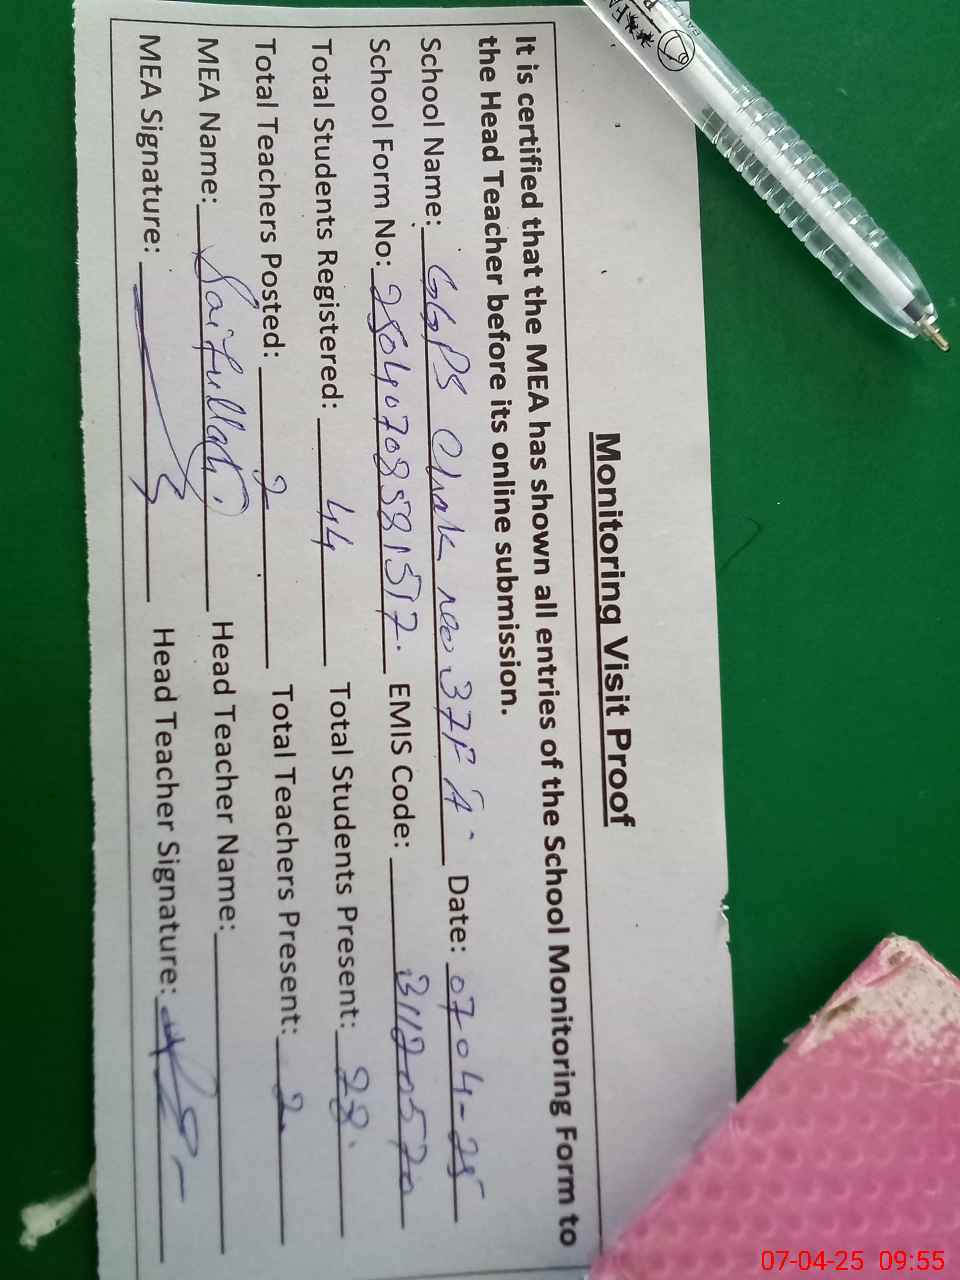 Monitoring Visit Proof
It is certified that the MEA has shown all entries of the School Monitoring Form to
the Head Teacher before its online submission.
School Name: GGPS Chak no 37F A. Date: 07-04-25
School Form No: EMIS Code: 31120570
Total Students Registered: 44 Total Students Present: 28.
Total Teachers Posted: 2 Total Teachers Present: 2
MEA Name: Saifullah Head Teacher Name:
MEA Signature: Head Teacher Signature:
07-04-25 09:55